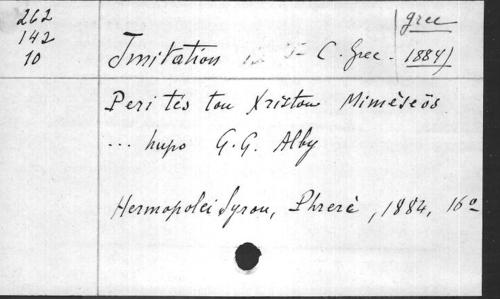 262
142
10
grec
Imitation J C. Grec. 1884)
Peri tès tou Xristou Mimèseôs
... hupo G.G. Alby
Hermopolei Syrou, Phrerè, 1884, 16°